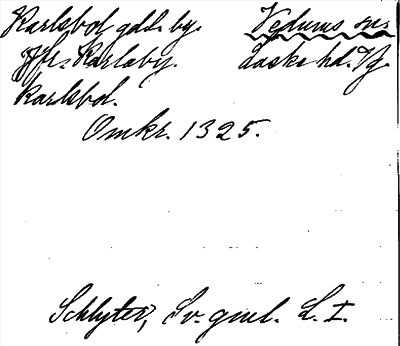 Karlsbol gdl. by. Vedums sn.
Jfr. Karlaby. Laske hd. Vg.
Karlsbol.
Omkr. 1325.
Schlyter, Sv. gml. L. I.